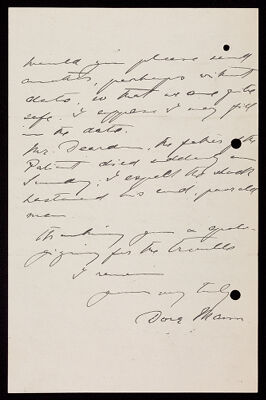 Would you please send
another, perhaps without
date, so that we are quite
safe. I suppose I may fill
in the date.
Mr. Dearden, the father of the
Patient died suddenly on
Sunday, I expect the shock
hastened his end, poor old
man.
Thanking you &
for the trouble
I remain
yours very truly
Dora Mann